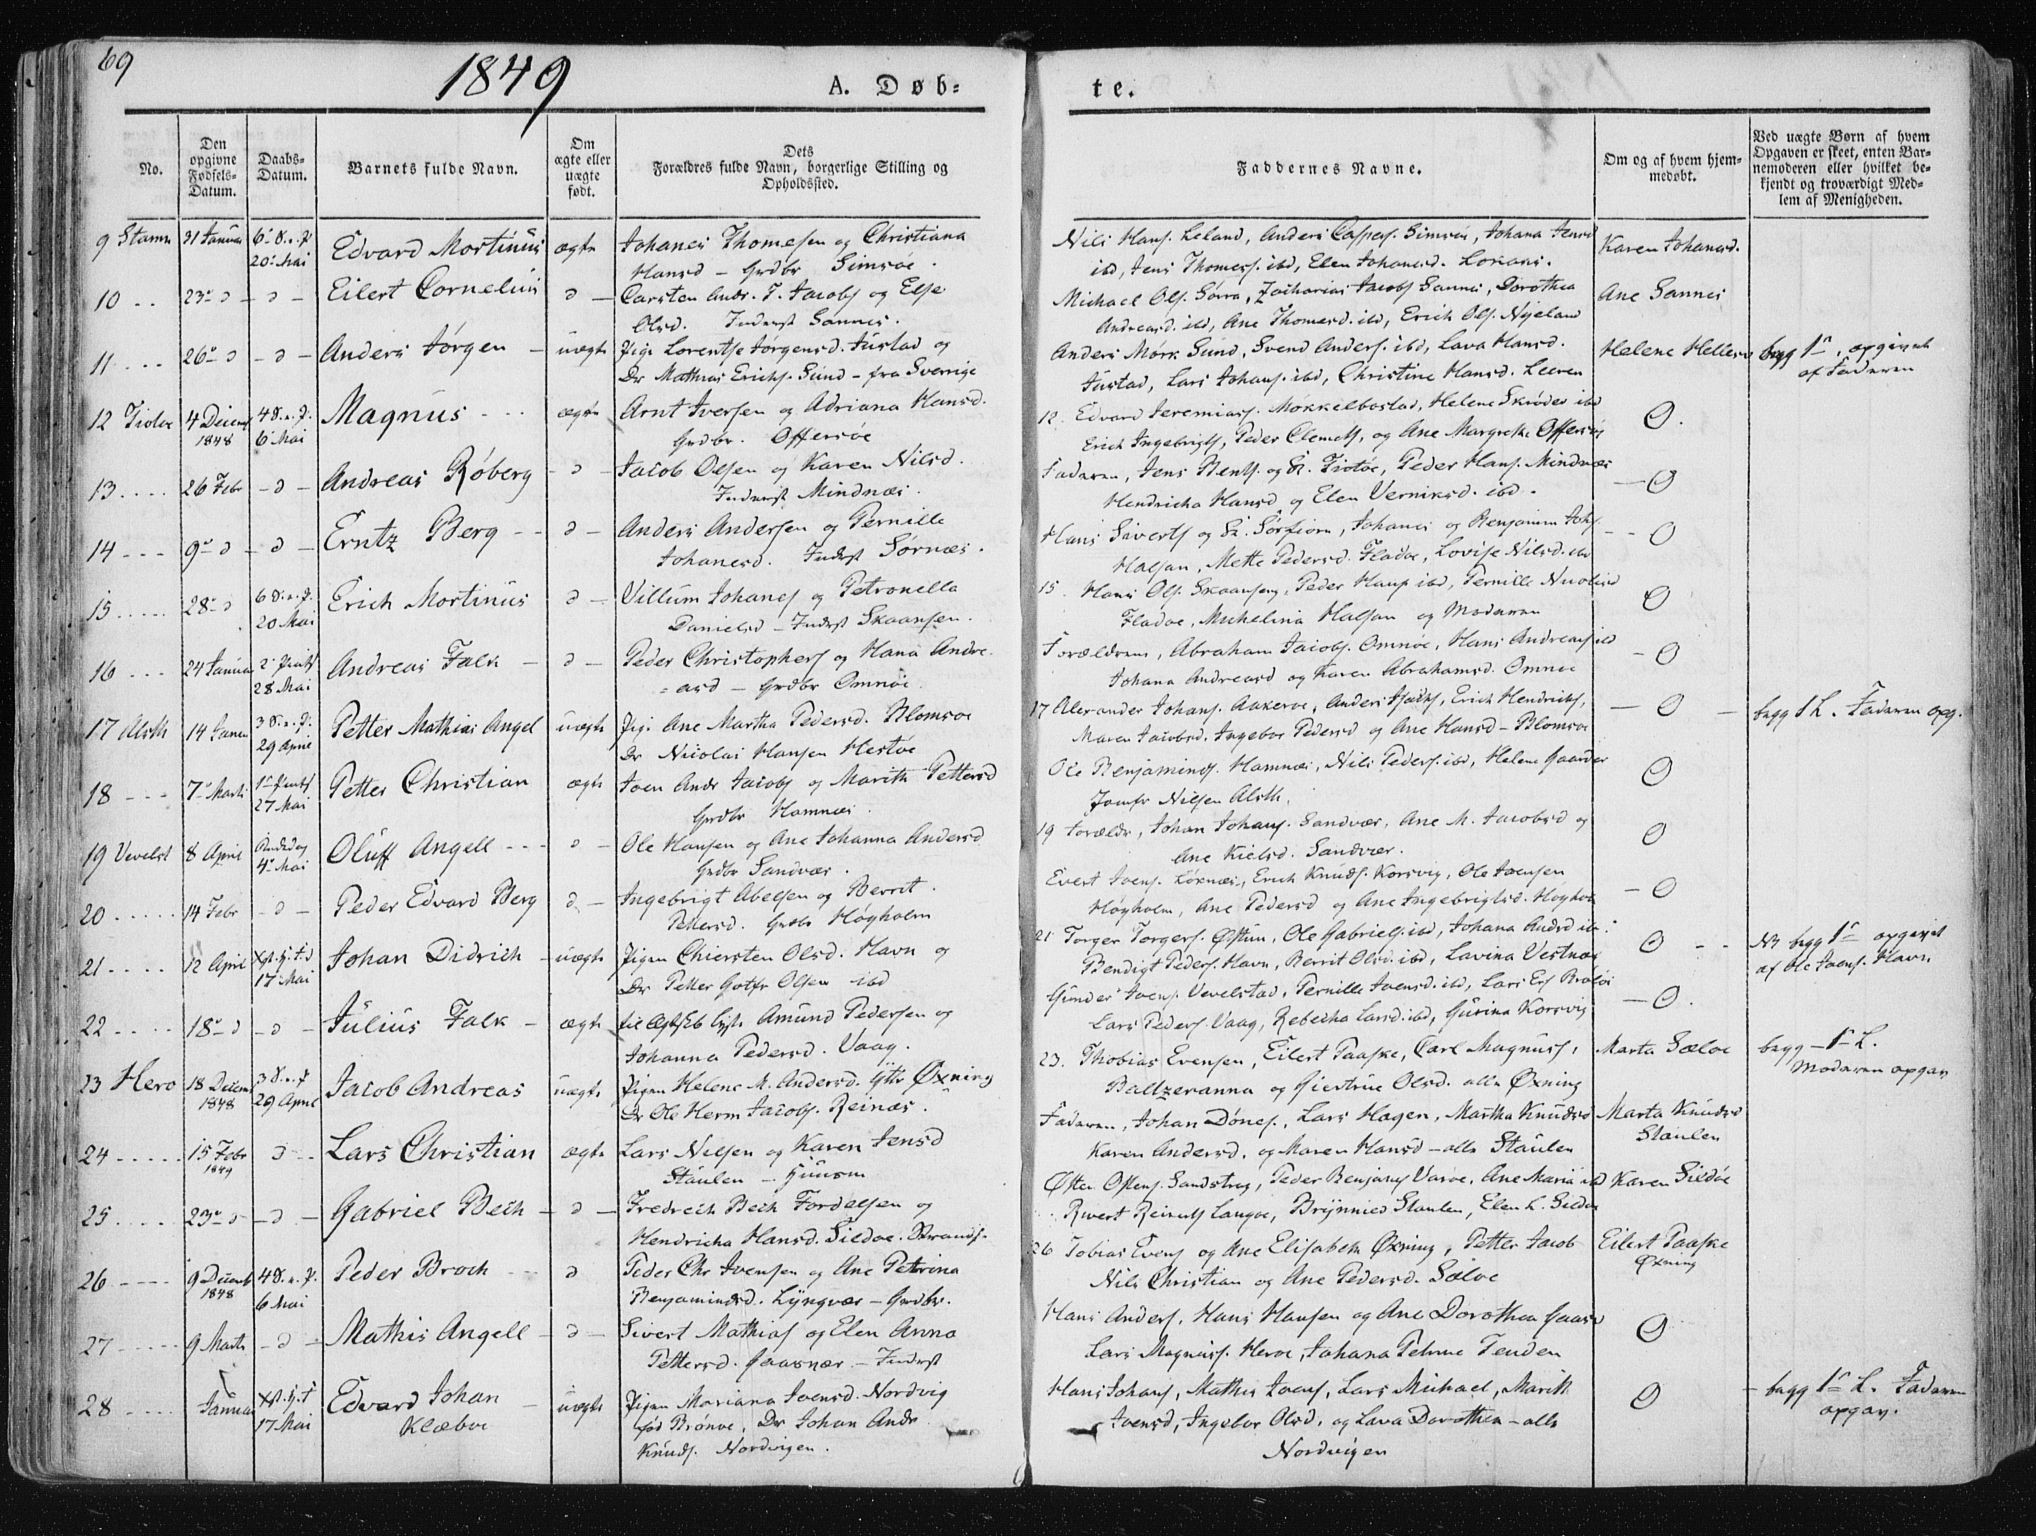 69
1849
A. Døb-
te.
No.
Den opgivne Fødsels-Datum.
Daabs-Datum.
Barnets fulde Navn.
Om ægte eller uægte født.
Dets Forældres fulde Navn, borgerlige Stilling og Opholdssted.
Faddernes Navne.
Om og af hvem hjem-medøbt.
Ved uægte Børn af hvem Opgaven er skeet, enten Bar-nemoderen eller hvilket be-kjendt og troværdigt Med-lem af Menigheden.
9 Stamn 31 Januar 6 S. e. P. 20 Mai Edvard Mortinus ægte Johanes Thomesen og Christiana
Hansd - Grdbr Simsøe.
Nils Hans. Leland, Anders Caspers. Simsøe, Johana Jensd
ibd, Jens Thomess. ibd, Elen Johanesd.
Karen Johanesd.
10 23 d - d - Eilert Cornelius d - Carsten Andr. J. Jacobs og Else
Olsd. Inderst Sannes.
Michael Ols. Sørra, Zacharias Jacobs Sannes, Dorothea
Andreasd. ibd, Ane Thomesd. ibd, Erich Ols. Nyeland
Ane Sannes
11 26 d - d - Anders Jørgen - uægte Pige Lorentse Jørgensd. Justad og
Dr Mathias Erichs. Sund - fra Sverrige
Anders Mørk Sund, Svend Anders. ibd, Lava Hansd.
Justad, Lars Johans. ibd, Christine Hansd. Leeren
Helene Hellesv
begg 1, opgivet
af Faderen
12 Tiøtøe 4 Decemb 1848 4 S. e. P. 6 Mai Magnus ægte Arnt Iversen og Adriana Hansd.
Grdbr. Offersøe
12. Edvard Jeremias. Møkkelbostad, Helene Skrøder ibd
Erich Ingebrigts, Peder Clemets, og Ane Margrethe Offersøe
O.
13 26 Febr - d - Andreas Røberg - d - Jacob Olsen og Karen Nilsd.
Inderst Mindnæs.
Faderen, Jens Bents. og Tiøtøe, Peder Hans. Mindnæs
Hendricha Hansd og Elen Verniksd. ibd.
O
14 9 d - d - Erntz Berg - d - Anders Andersen og Pernille
Johanesd. Inderst Sørnæs.
Hans Siverts og Sørfiorn, Johanes og Benjamin Johs.
Halsan, Mette Pedersd. Fladøe, Lovise Nilsd. ibd
O
15 28 d 6 S. e. P. 20 Mai Erich Mortinus d - Villum Johanes og Petronella
Danielsd - Inderst Skaansen.
15. Hans Ols. Skaansen, Peder Hans ibd, Pernille
Fladøe, Michelina Halsan og Moderen
O
16 24 Januar 2 Pintsd 28 Mai Andreas Falk - d - Peder Christophers og Hana Andre-
asd - Grdbr Omnøe.
Forældrene, Abraham Jacobs. Omnøe, Hans Andreas ibd
Johana Andreasd og Karen Abrahamsd. Omnøe
O
17 Alsth 14 Janu 3 S. e. P. 29 April Petter Mathias Angel uægte Pige Ane Martha Pedersd. Blomsøe
Dr Nicolai Hansen Hestøe
17 Alexander Johans. Aakerøe, Anders, Erich Hendriks,
Maren Jacobsd. Ingebor Pedersd og Ane Hansd - Blomsøe
O
begg 1 L. Faderen opg.
18 7 Marts 1 Pintsd 27 Mai Petter Christian ægte Joen Andr Jacobs og Marith Pettersd
Grdbr Hamnæs.
Ole Benjamins. Hamnæs, Nils Peders. ibd, Helene Gaarder
Jomfr Nilsen Alsth.
O
19 Vevelst 8 April Bededag 4 Mai Oluff Angell d - Ole Hansen og Ane Johanna Andersd
Grdbr Sandvær.
19 Forældr, Johan Johans. Sandvær, Ane M. Jacobsd og
Ane Kielsd. Sandvær.
O
20 14 Febr - d - Peder Edvard Berg d - Ingebrigt Abelsen og Berrit
Pettersd. Grdbr Høgholm
Evert Joens. Løknæs, Erich Knuds. Korsvig, Ole Joensen
Høgholm, Ane Pedersd og Ane Ingebrigtsd. Høgholm
O
21 12 April 17 Mai Johan Didrich - uægte Pigen Chiersten Olsd. Havn og
Dr Petter Gotfr Olsen ibd
21 Torger Torgers. Østun, Ole Gabriels. ibd, Johana Andrsd ibd
Bendigt Peders. Havn, Berrit Olsd. ibd, Lavina Vestnæs
O
begg 1 opgivet
af Ole Joens. Havn.
22 18 d - d - Julius Falk - ægte Amund Pedersen og
Johanna Pedersd. Vaag.
Gunder Joens. Vevelstad, Pernille Joensd. ibd, Lars Ers
Lars Peders. Vaag, Rebecka Larsd. ibd, Gurina Korsvig
O.
23 Herø 18 Decemb 1848 3 S. e. P. 29 April Jacob Andreas uægte Pigen Helene M. Andersd. Øxning
Dr Ole Herm Jacobs. Reinæs.
23. Thobias Evensen, Eilert Paaske, Carl Magnus,
Baltzeranna og Giertrue Olsd. alle Øxning
Marta Sæløe
begg - 1 L.
Moderen opgav
24 15 Febr 1849 d - Lars Christian ægte Lars Nilsen og Karen Jensd
Staulen - Huusm
Faderen, Johan Dønes., Lars Hagen, Martha Knudsd
Karen Andersd. og Maren Hansd - alle Staulen
Marta Knudsd
Staulen
25 23 d - d - Gabriel Bech - d - Fredrich Bech Fordelsen og
Hendricha Hansd. Sildøe. Strands.
Østen Ostens. Sandstrag, Peder Benjams Varøe, Ane Maria ibd
Rivert Reinerts Langøe, Staulen, Elen L. Sildøe
Karen Sildøe
26 9 Decemb 1848 4 S. e. P. 6 Mai Peder Broch d Peder Chr Ivensen og Ane Petrina
Benjaminsd. Lyngvær - Grdbr.
26 Tobias Evens og Ane Elisabeth Øxning, Petter Jacob
Nils Christian og Ane Pedersd. Sæløe
Eilert Paaske
Øxning
27 9 Marts - d - Mathis Angell - d - Sivert Mathias og Elen Anna
Pettersd. Gaasvær - Inderst
Hans Anders. Hans Hansen og Ane Dorothea Gaasv
Lars Magnus. Herøe, Johana Petrine Tenden
O
28 Januar 17 Mai Edvard Johan
Klæboe - uægte Pigen Mariana Joensd. Nordvig
fød Brønøe, Dr Johan Andr
Knuds. Nordvigen.
Hans Johans, Mathis Joens, Lars Michael, Marith
Joensd, Ingebor Olsd. og Lava Dorothea - alle
Nordvigen
O
- begg 1 L. Faderen
opgav.